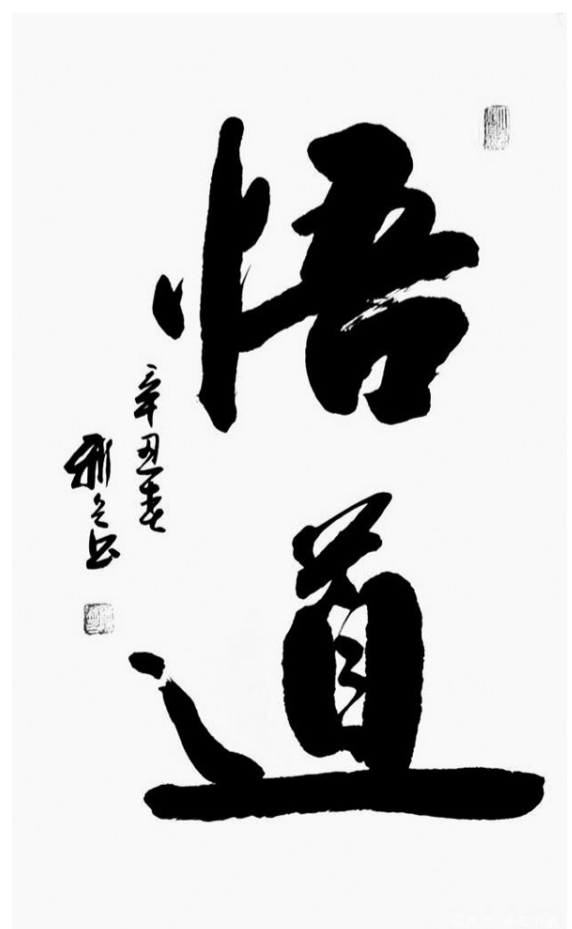 悟道
辛丑春